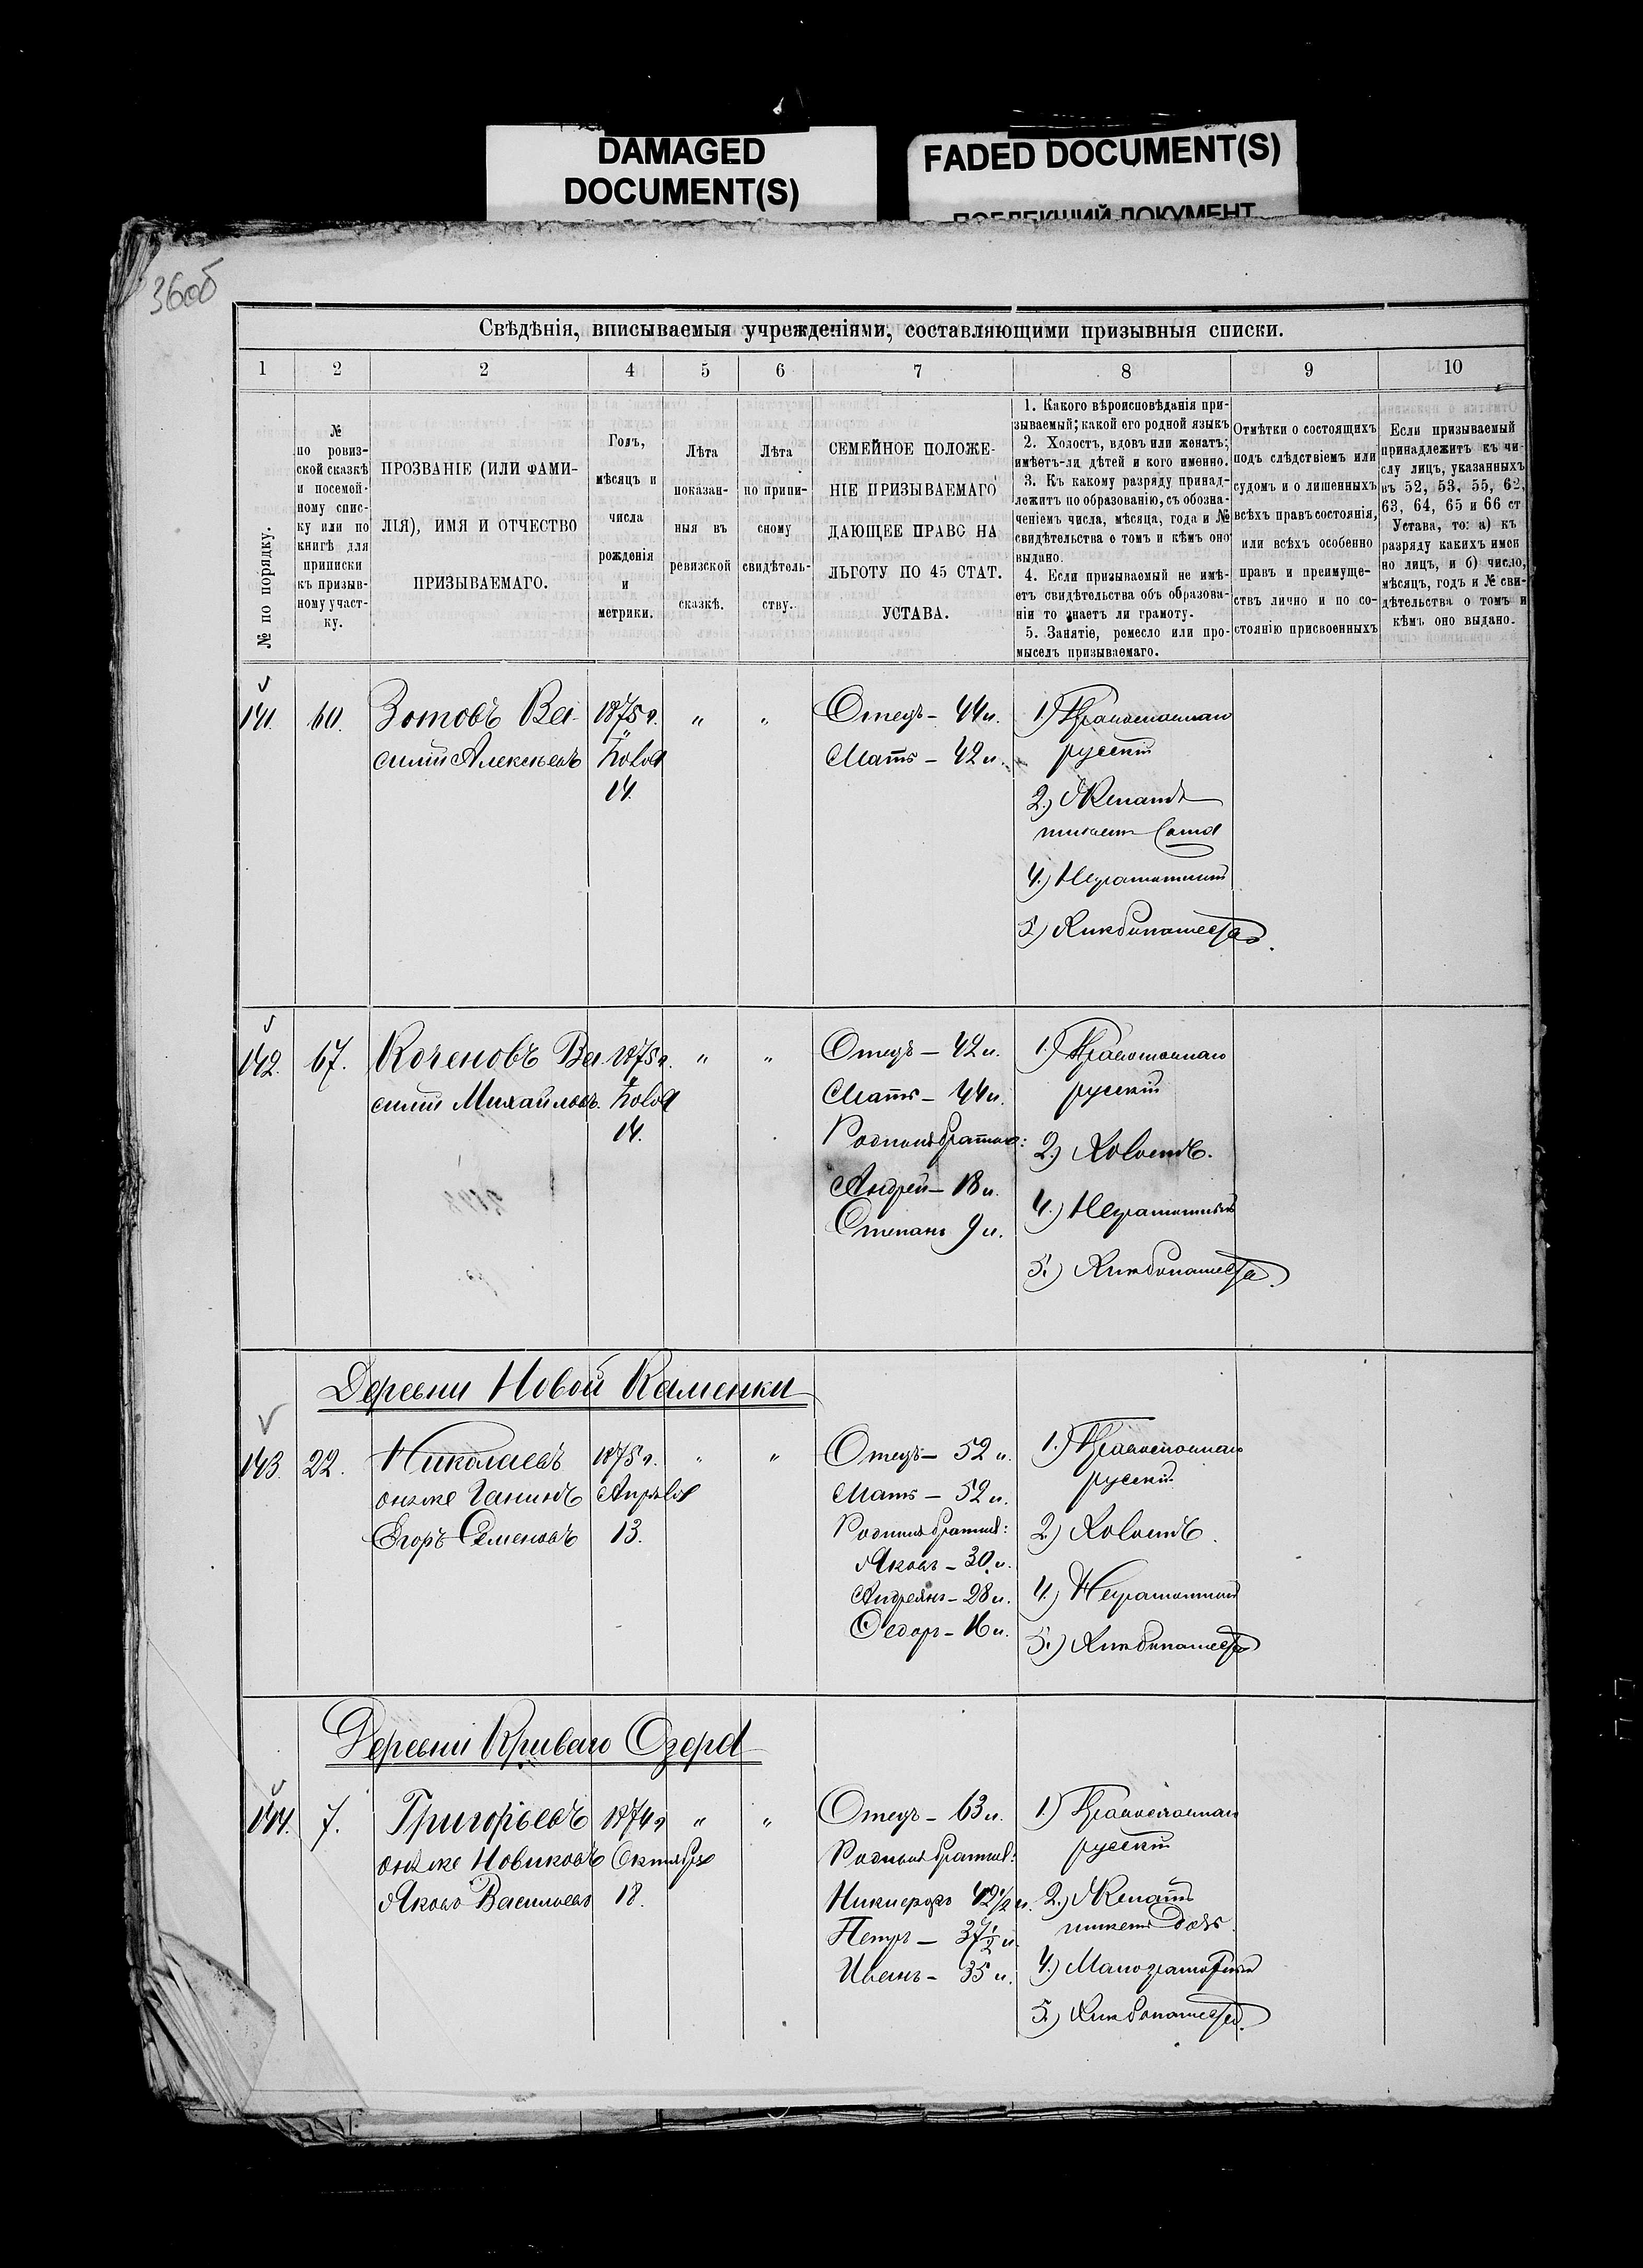 DAMAGED
DOCUMENT(S)
FADED DOCUMENT(S)
ПОБЛЕКШИЙ ДОКУМЕНТ
36об
Свѣдѣнія, вписываемыя учрежденіями, составляющими призывныя списки.
1 2 2 4 5 6 7 8 9 10
№ по порядку.
№
по ровиз-
ской сказкѣ
и посемей-
ному спис-
ку или по
книгѣ для
приписки
къ призыв-
ному участ-
ку.
ПРОЗВАНІЕ (ИЛИ ФАМИ-
ЛІЯ), ИМЯ И ОТЧЕСТВО
ПРИЗЫВАЕМАГО.
Годъ,
мѣсяцъ и
числа
рожденія
и
метрики.
Лѣта
показан-
ныя въ
ревизской
сказкѣ.
Лѣта
по припи-
сному
свидѣтель-
ству.
СЕМЕЙНОЕ ПОЛОЖЕ-
НІЕ ПРИЗЫВАЕМАГО
ДАЮЩЕЕ ПРАВО НА
ЛЬГОТУ ПО 45 СТАТ.
УСТАВА.
1. Какого вѣроисповѣданія при-
зываемый; какой его родной языкъ
2. Холостъ, вдовъ или женатъ;
имѣетъ-ли дѣтей и кого именно.
3. Къ какому разряду принад-
лежитъ по образованію, съ обозна-
ченіемъ числа, мѣсяца, года и №
свидѣтельства о томъ и кѣмъ оно
выдано.
4. Если призываемый не имѣ-
етъ свидѣтельства объ образова-
ніи то знаетъ ли грамоту.
5. Занятіе, ремесло или про-
мыселъ призываемаго.
Отмѣтки о состоящихъ
подъ слѣдствіемъ или
судомъ и о лишенныхъ
всѣхъ правъ состоянія,
или всѣхъ особенно
правъ и преимуще-
ствъ лично и по со-
стоянію присвоенныхъ
Если призываемый
принадлежитъ къ чи-
слу лицъ, указанныхъ
въ 52, 53, 55, 62,
63, 64, 65 и 66 ст
Устава, то: а) къ
разряду какихъ имен
но лицъ, и б) число,
мѣсяцъ, годъ и № сви-
дѣтельства о томъ и
кѣмъ оно выдано.
141. 60. Зотовъ Ва- 1875 г. " " Отецъ – 44 л. 1) Православнаго
силій Алексѣевъ Мать – 42 л. русскій
14. 2.) Женатъ
имѣетъ сына
4.) Неграмотный
5.) Хлѣбопашество.
142. 67. Коченовъ Ва- 1875 г. " " Отецъ – 42 л. 1.) Православнаго
силій Михайловъ. Мать – 44 л. русскій
14. Родныя братья: 2.) Холостъ.
Андрей – 18 л. 4.) Неграмотный
Степанъ 9 л.
5.) Хлѣбопашество.
Деревни Новой Каменки
143. 22. Николаевъ 1875 г. " " Отецъ – 52 л. 1.) Православнаго
онъже Ганинъ Апрѣля Мать – 52 л. русскій
Егоръ Семеновъ 13. Родныя братья: 2.) Холостъ.
Яковъ – 30 л.
Андреянъ – 28 л. 4.) Неграмотный
Федоръ – 16 л. 5.) Хлѣбопашество
Деревни Криваго Озера
144. 7. Григорьевъ 1874 г " " Отецъ – 63 л. 1.) Православнаго
онъже Новиковъ Октября Родныя братья: русскій
Яковъ Васильевъ 18. Никифоръ 42 1/2 л. 2.) Женатъ
Петръ – 37 1/2 л. имѣетъ дочь.
Иванъ – 35 л. 4.) Малограмотный
5.) Хлѣбопашество.